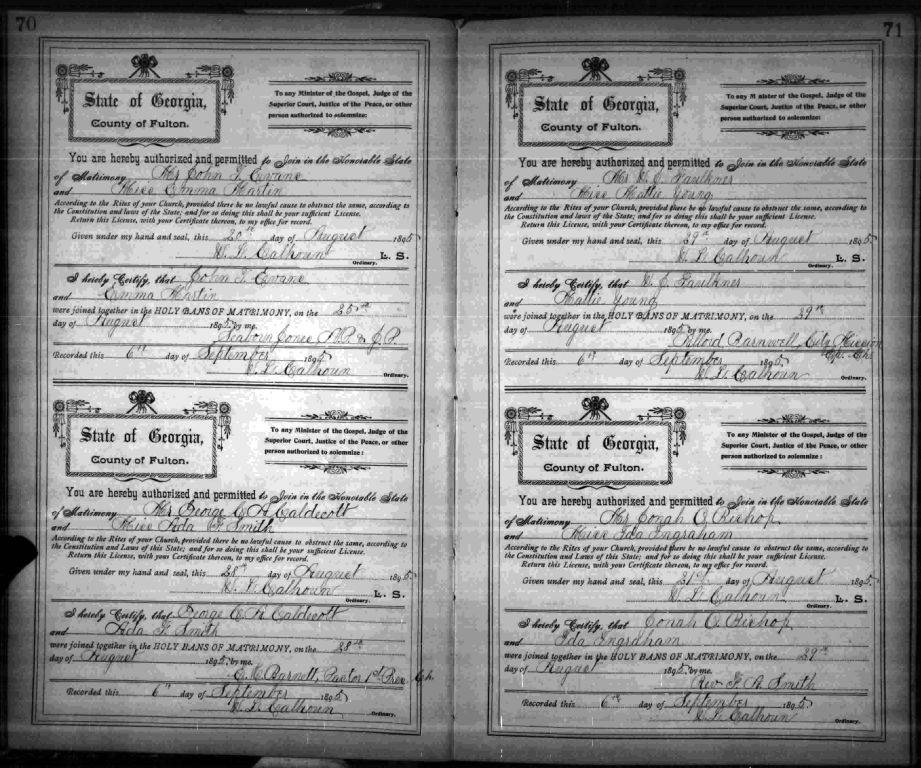 70
State of Georgia,
County of Fulton.
To any Minister of the Gospel, Judge of the
Superior Court, Justice of the Peace, or other
person authorized to solemnize:
You are hereby authorized and permitted to Join in the Honorable State
of Matrimony Mr John T. Evans
and Miss Emma Martin
According to the Rites of your Church, provided there be no lawful cause to obstruct the same, according to the
Constitution and laws of the State; and for so doing this shall be your sufficient License.
Return this License, with your Certificate thereon, to my office for record.
Given under my hand and seal, this 20th day of August 1895
W. L. Calhoun L. S.
Ordinary.
I hereby Certify, that John T. Evans
and Emma Martin
were joined together in the HOLY BANS OF MATRIMONY, on the 25th
day of August 1895, by me.
Seaborn Jones N.P. & J.P.
Recorded this 6th day of September 1895
W. L. Calhoun
Ordinary.
State of Georgia,
County of Fulton.
To any Minister of the Gospel, Judge of the
Superior Court, Justice of the Peace, or other
person authorized to solemnize:
You are hereby authorized and permitted to Join in the Honorable State
of Matrimony Mr George C. A Caldecott
and Miss Ada F. Smith
According to the Rites of your Church, provided there be no lawful cause to obstruct the same, according to
the Constitution and Laws of this State; and for so doing this shall be your sufficient License.
Return this License, with your Certificate thereon, to my office for record.
Given under my hand and seal, this 28th day of August 1895
W. L. Calhoun L. S.
Ordinary.
I hereby Certify, that George C. A Caldecott
and Ada F. Smith
were joined together in the HOLY BANS OF MATRIMONY, on the 28th
day of August 1895, by me.
Barnett, Pastor 1st Pres. Ch.
Recorded this 6th day of September 1895
W. L. Calhoun
Ordinary.
71
State of Georgia,
County of Fulton.
To any Minister of the Gospel, Judge of the
Superior Court, Justice of the Peace, or other
person authorized to solemnize:
You are hereby authorized and permitted to Join in the Honorable State
of Matrimony Mr W. J. Faulkner
and Miss Mattie Young
According to the Rites of your Church, provided there be no lawful cause to obstruct the same, according to
the Constitution and laws of the State; and for so doing this shall be your sufficient License.
Return this License, with your Certificate thereon, to my office for record.
Given under my hand and seal, this 29th day of August 1895
W. L. Calhoun L. S.
Ordinary.
I hereby Certify, that W. J. Faulkner
and Mattie Young
were joined together in the HOLY BANS OF MATRIMONY, on the 29th
day of August 1895, by me.
Barnwell, City Mission
Recorded this 6th day of September 1895
W. L. Calhoun
Ordinary.
State of Georgia,
County of Fulton.
To any Minister of the Gospel, Judge of the
Superior Court, Justice of the Peace, or other
person authorized to solemnize:
You are hereby authorized and permitted to Join in the Honorable State
of Matrimony Mr Jonah O. Bishop
and Miss Ida Ingraham
According to the Rites of your Church, provided there be no lawful cause to obstruct the same, according to
the Constitution and laws of this State; and for so doing this shall be your sufficient License.
Return this License, with your Certificate thereon, to my office for record.
Given under my hand and seal, this 21st day of August 1895
W. L. Calhoun L. S.
Ordinary.
I hereby Certify, that Jonah O. Bishop
and Ida Ingraham
were joined together in the HOLY BANS OF MATRIMONY, on the 29
day of August 1895 by me.
Rev. F. R. Smith
Recorded this 6th day of September 1895
W. L. Calhoun
Ordinary.